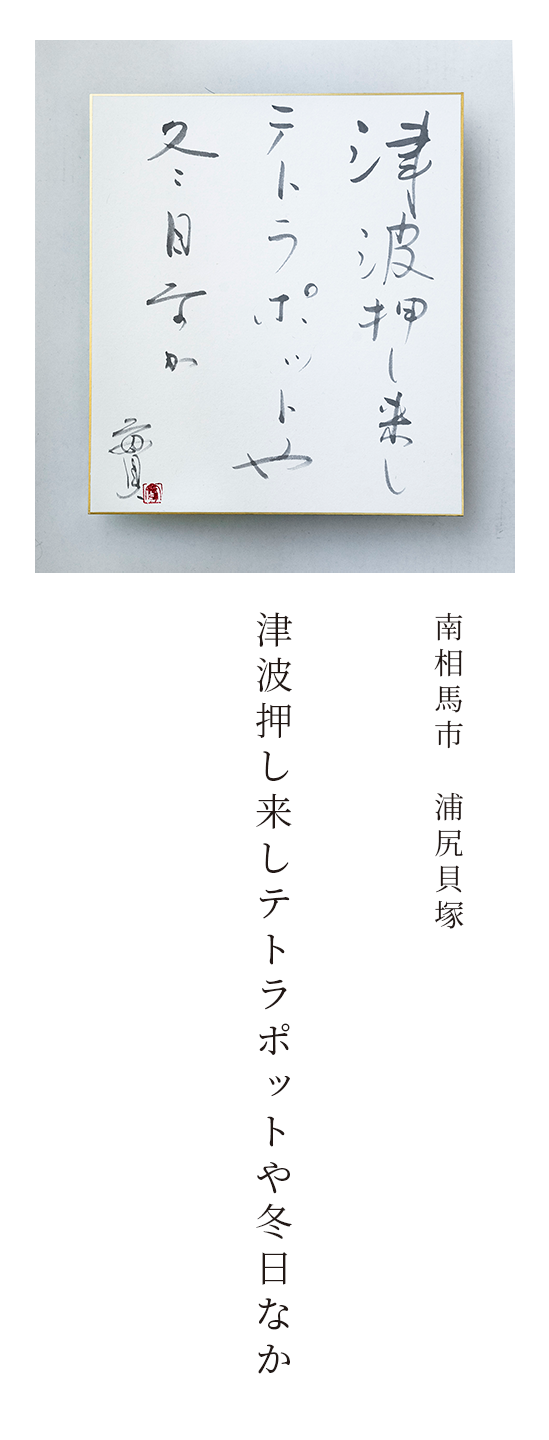 津波押し来し
テトラポットや
冬日なか
南相馬市　浦尻貝塚
津波押し来しテトラポットや冬日なか